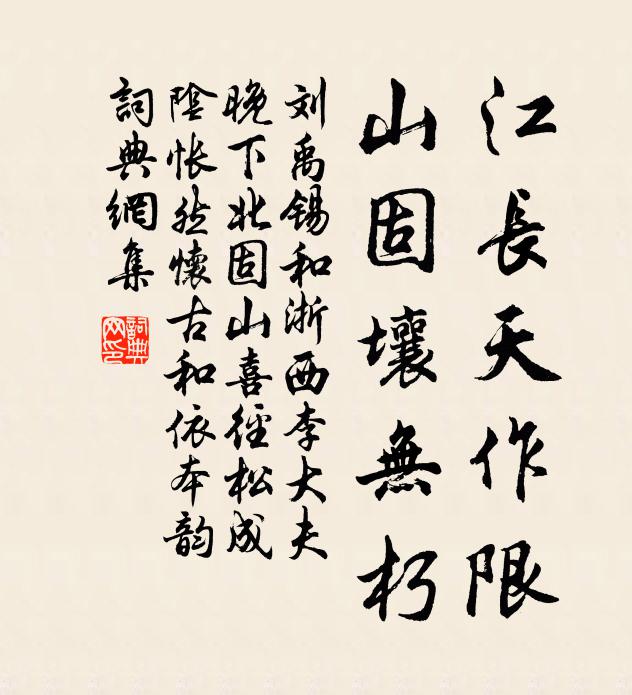 江長天作限
山固壤無朽
刘禹锡和浙西李大夫
晚下北固山喜径松成
陰怅然懷古和依本韵
詞典網集
詞典
网印